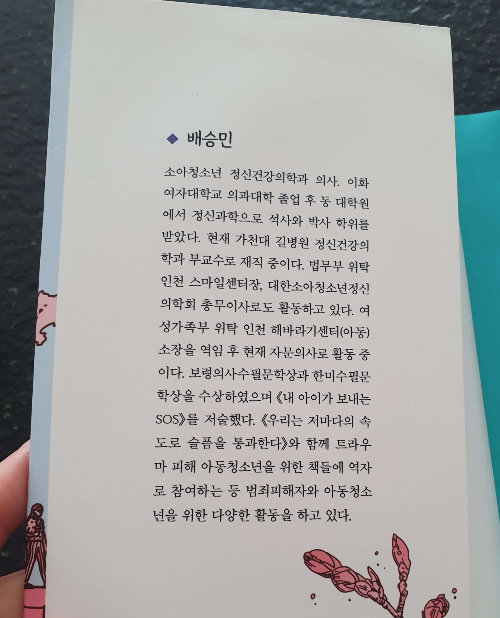 ◆ 배승민
소아청소년 정신건강의학과 의사. 이화
여자대학교 의과대학 졸업 후 동 대학원
에서 정신과학으로 석사와 박사 학위를
받았다. 현재 가천대 길병원 정신건강의
학과 부교수로 재직 중이다. 법무부 위탁
인천 스마일센터장, 대한소아청소년정신
의학회 총무이사로도 활동하고 있다. 여
성가족부 위탁 인천 해바라기센터(아동)
소장을 역임 후 현재 자문의사로 활동 중
이다. 보령의사수필문학상과 한미수필문
학상을 수상하였으며 《내 아이가 보내는
SOS》를 저술했다. 《우리는 저마다의 속
도로 슬픔을 통과한다》와 함께 트라우
마 피해 아동청소년을 위한 책들에 역자
로 참여하는 등 범죄피해자와 아동청소
년을 위한 다양한 활동을 하고 있다.